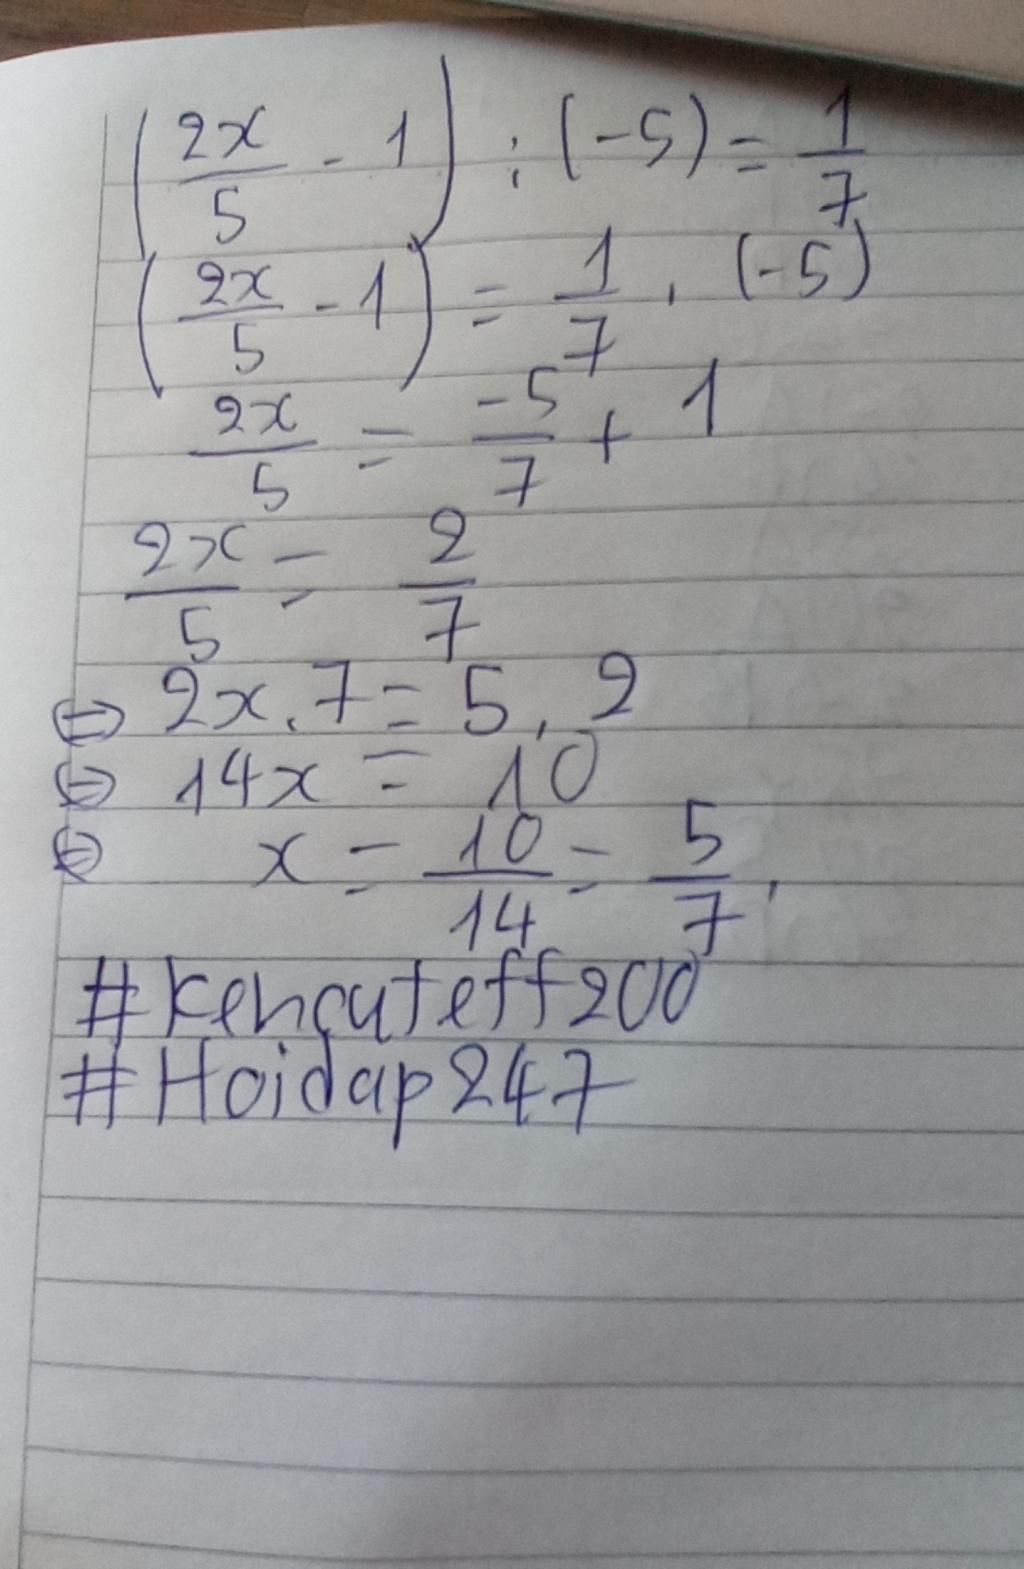 (2x/5 - 1) : (-5) = 1/7
(2x/5 - 1) = 1/7 . (-5)
2x/5 = -5/7 + 1
2x/5 = 2/7
⇔ 2x.7 = 5.2
⇔ 14x = 10
⇔ x = 10/14 = 5/7.
#kencuteff200
#Hoidap247